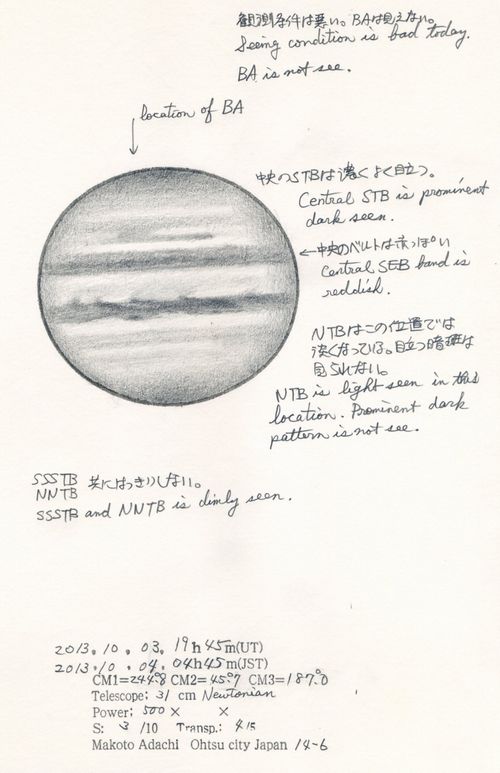 観測条件は悪い。BAは見えない。
Seeing condition is bad today.
BA is not see.
location of BA
中央のSTBは濃くよく目立つ。
Central STB is prominent
dark seen.
←中央のベルトは赤っぽい
Central SEB band is
reddish.
NTBはこの位置では
淡くなっている。目立つ暗班は
見られない。
NTB is light seen in this
location. Prominent dark
pattern is not see.
SSSTB 共にはっきりしない。
NNTB
SSSTB and NNTB is dimly seen.
2013. 10. 03. 19h45m(UT)
2013. 10. 04. 04h45m(JST)
CM1=244.°8 CM2=45.°7 CM3=187.°0
Telescope; 31 cm Newtonian
Power; 500 × ×
S: 3 /10 Transp.: 4/5
Makoto Adachi Ohtsu city Japan 14-6